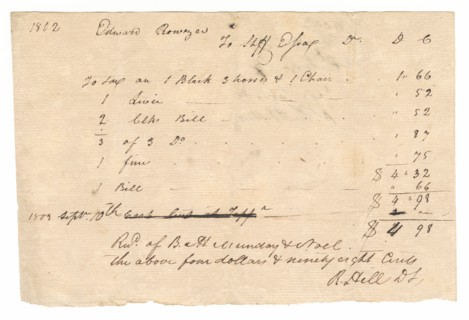 1802 Edward Rowzee
To Shff Essex Dr D C
To Tax on 1 Black 3 horses & 1 Chair 1 " 66
1 Levie " 52
2 Clks Bill " 52
1/3 of 3 Do " 87
1 fine " 75
$ 4 " 32
1 Bill " 66
$ 4 " 98
1803 Septr. 10th
$ 4 98
Recd. of B & H Munday & Noel
the above four dollars & ninety eight Cents
R Hill DS